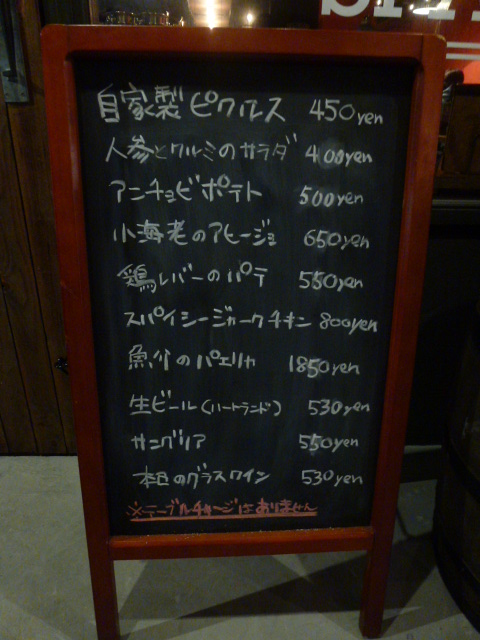 自家製ピクルス 450yen
人参とクルミのサラダ 400yen
アンチョビポテト 500yen
小海老のアヒージョ 650yen
鶏レバーのパテ 550yen
スパイシージャークチキン 800yen
魚介のパエリヤ 1850yen
生ビール(ハートランド) 530yen
サングリア 550yen
本日のグラスワイン 530yen
※テーブルチャージはありません